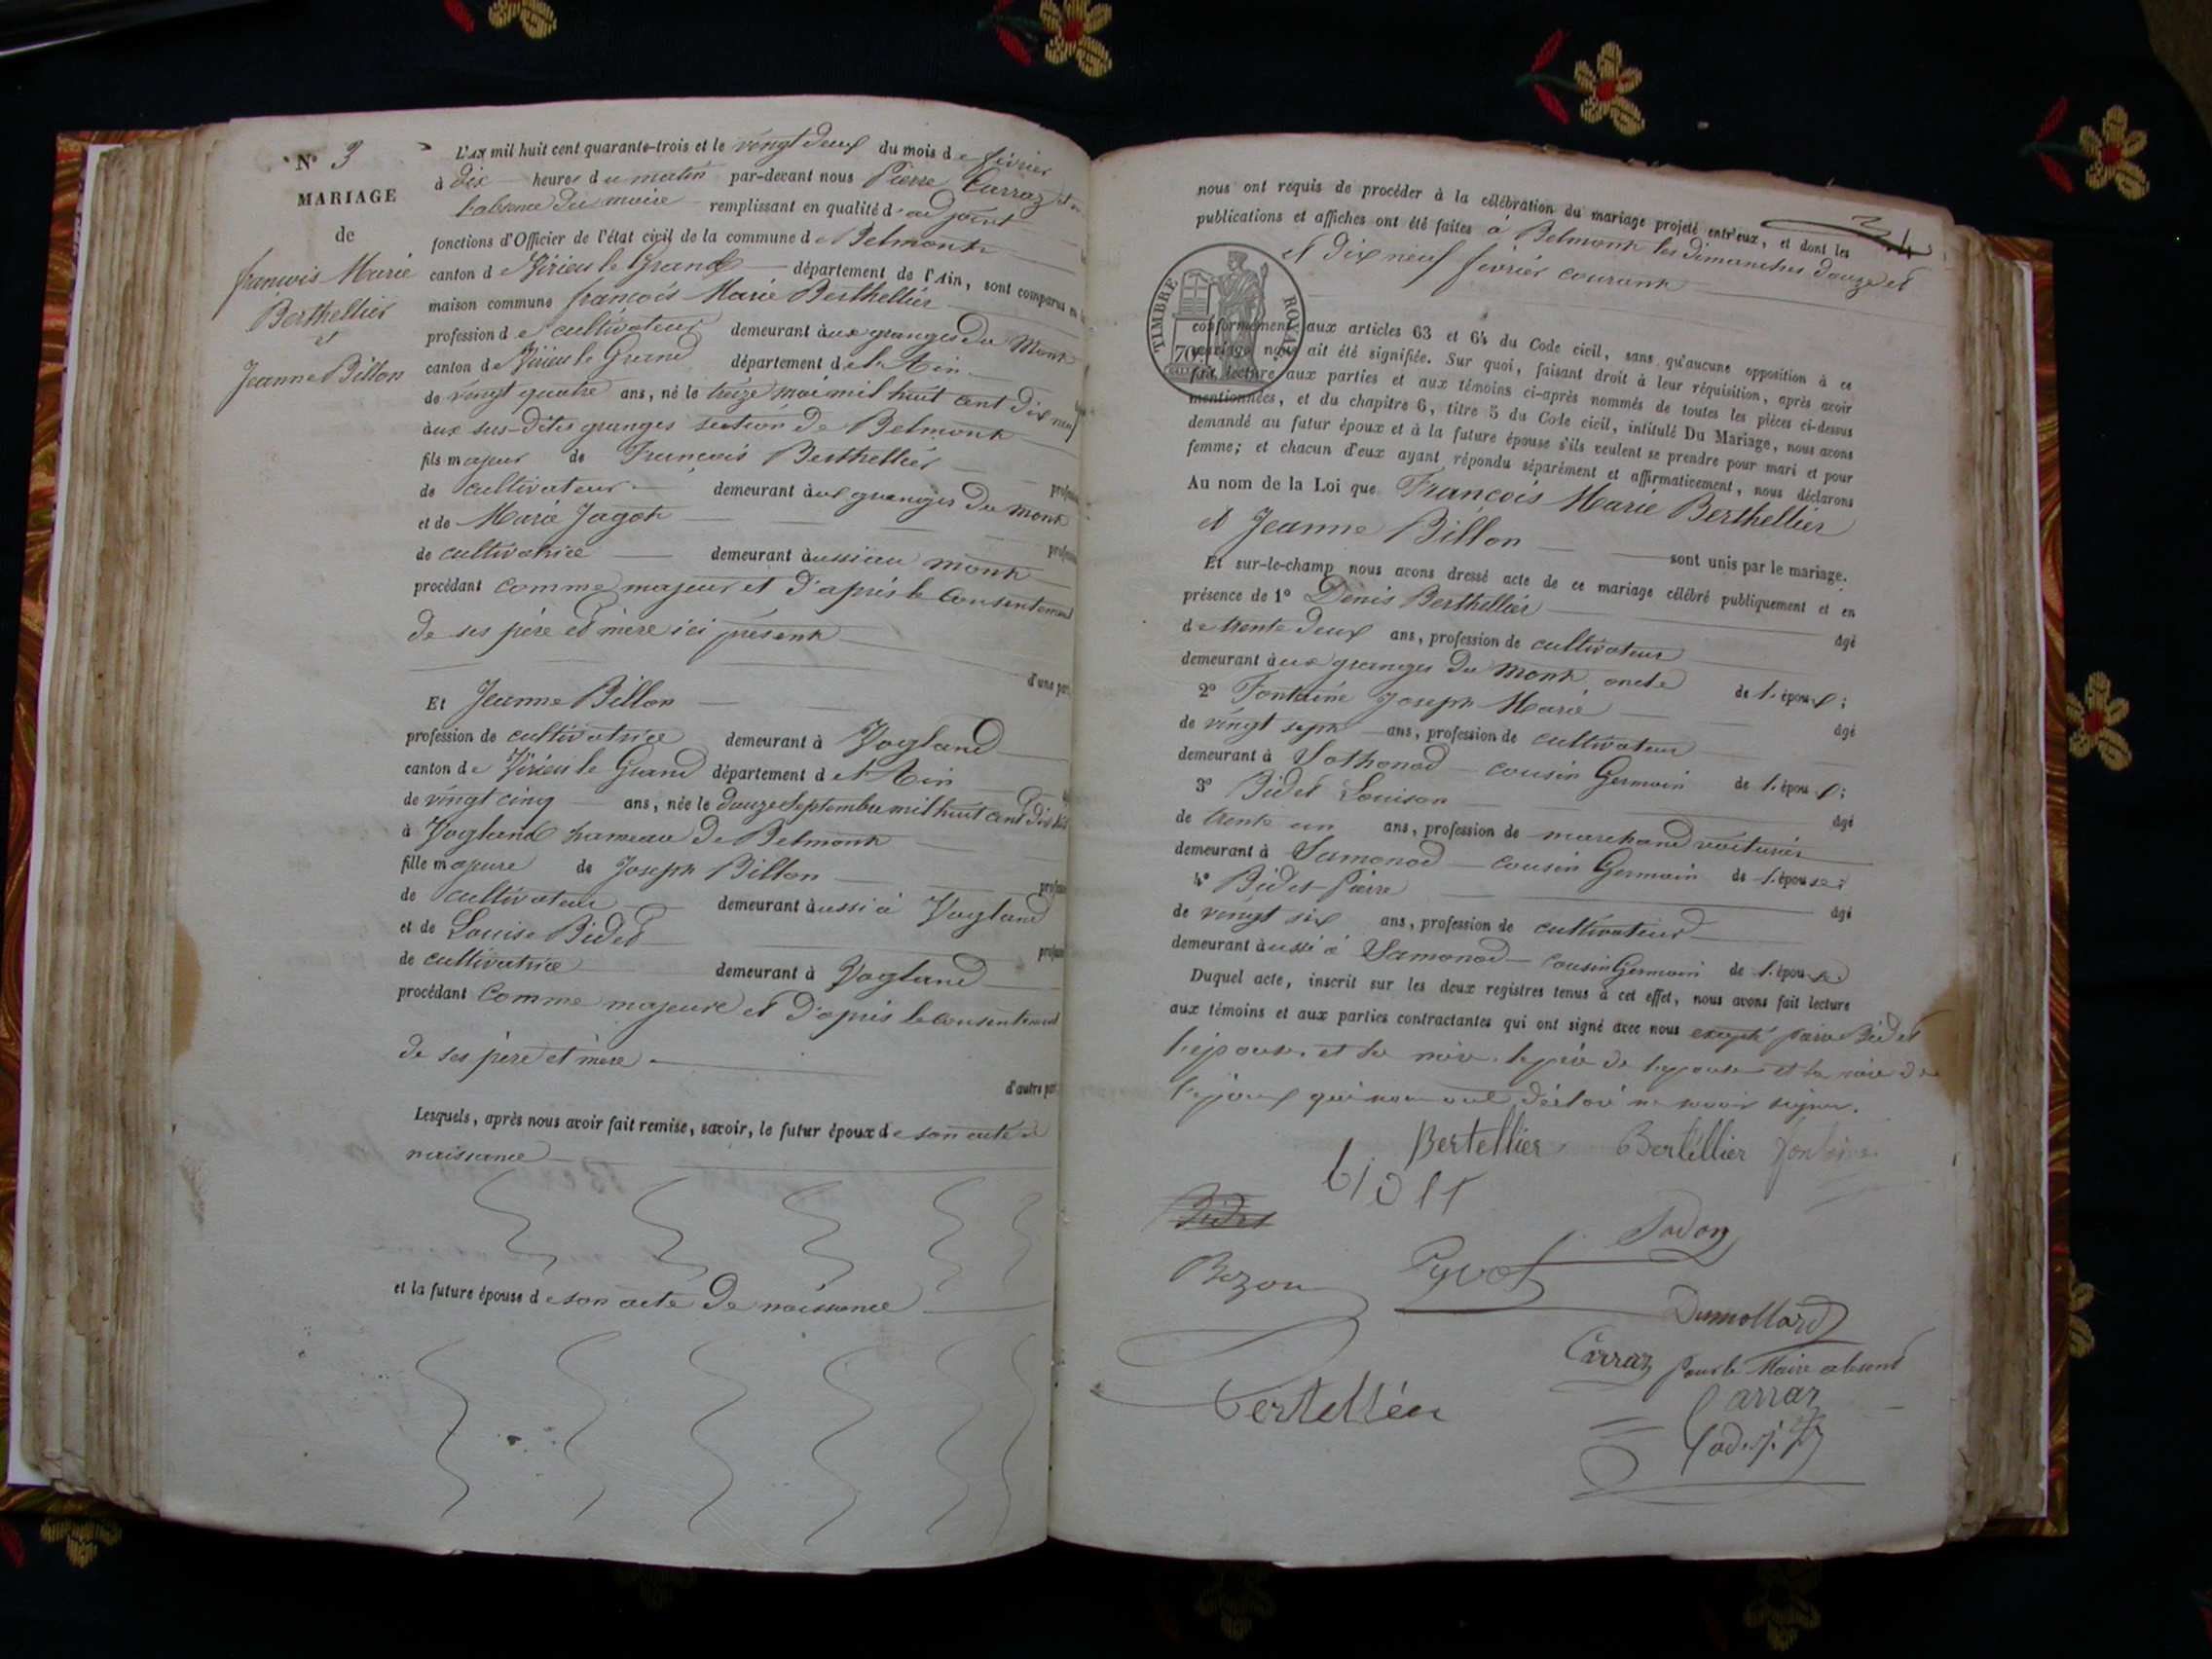 N° 3
MARIAGE
de
francois Marie
Berthellier
et
Jeanne Billon
L'AN mil huit cent quarante-trois et le vingt deux du mois de février
à dix heures du matin par-devant nous Pierre Carraz
l'absence du maire remplissant en qualité d'adjoint
fonctions d'Officier de l'état civil de la commune de Belmont
canton de Virieu le Grand département de l'Ain, sont comparus en
maison commune francois Marie Berthellier
profession de cultivateur demeurant aux granges du Mont
canton de Virieu le Grand département de l'Ain
de vingt quatre ans, né le treize mai mil huit cent dix neuf
aux sus-dites granges section de Belmont
fils majeur de Francois Berthellier
de cultivateur demeurant aux granges du mont
et de Marie Jagot
de cultivatrice demeurant aussi au mont
procédant comme majeur et d'après le consentement
de ses père et mère ici présent
d'une part
Et Jeanne Billon
profession de cultivatrice demeurant à Vogland
canton de Virieu le Grand département de l'Ain
de vingt cinq ans, née le douze Septembre mil huit cent dix
à Vogland hameau de Belmont
fille majeure de Joseph Billon
de cultivateur demeurant aussi à Vogland
et de Louise Bidet
de cultivatrice demeurant à Vogland
procédant comme majeure et d'après le consentement
de ses père et mère
d'autre part
Lesquels, après nous avoir fait remise, savoir, le futur époux de son acte de
naissance
et la future épouse de son acte de naissance
nous ont requis de procéder à la célébration du mariage projeté entr'eux, et dont les
publications et affiches ont été faites à Belmont les dimanches douze et
et dix neuf fevrier courant
TIMBRE ROYAL
70
conformément aux articles 63 et 64 du Code civil, sans qu'aucune opposition à ce
mariage nous ait été signifiée. Sur quoi, faisant droit à leur réquisition, après avoir
fait lecture aux parties et aux témoins ci-après nommés de toutes les pièces ci-dessus
mentionnées, et du chapitre 6, titre 5 du Code civil, intitulé Du Mariage, nous avons
demandé au futur époux et à la future épouse s'ils veulent se prendre pour mari et pour
femme; et chacun d'eux ayant répondu séparément et affirmativement, nous déclarons
Au nom de la Loi que Francois Marie Berthellier
et Jeanne Billon sont unis par le mariage.
Et sur-le-champ nous avons dressé acte de ce mariage célébré publiquement et en
présence de 1° Denis Berthellier âgé
de trente deux ans, profession de cultivateur
demeurant aux granges du mont oncle de l'époux;
2° Fontaine Joseph Marie âgé
de vingt sept ans, profession de cultivateur
demeurant à Sothonod cousin Germain de l'époux;
3° Bidet Louison âgé
de trente un ans, profession de marchand voiturier
demeurant à Samonod cousin Germain de l'épouse;
4° Bidet Pierre âgé
de vingt six ans, profession de cultivateur
demeurant aussi à Samonod cousin Germain de l'épouse
Duquel acte, inscrit sur les deux registres tenus à cet effet, nous avons fait lecture
aux témoins et aux parties contractantes qui ont signé avec nous excepté pierre Bidet
l'épouse et sa mère, le père de l'epouse et la mère de
l'epoux qui nous ont déclaré ne savoir signer.
Bertellier Bertellier fontaine
Bidet
Bozon
Dumollard
Carraz pour le Maire absent
Carraz
Bertelliéer